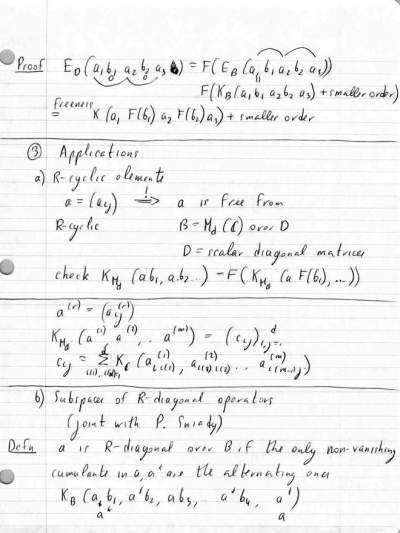 Proof E_D(a₁b₁ a₂b₂ a₃) = F(E_B(a₁b₁a₂b₂a₃))
F(K_B(a₁b₁ a₂b₂ a₃) + smaller order)
freeness
= K(a₁ F(b₁) a₂ F(b₂) a₃) + smaller order
③ Applications
a) R-cyclic elements
a = (a_ij) ⟹ a is free from
R-cyclic B = M_d(ℂ) over D
D = scalar diagonal matrices
check K_{M_d}(ab₁, ab₂...) = F(K_{M_d}(a F(b₁), ...))
a^(r) = (a_ij^(r))
K_{M_d}(a^(1) a^(2), .. a^(m)) = (c_ij)_{i,j=1}^d
c_ij = Σ K_ℂ(a_{i i(1)}^(1), a_{i(1) i(2)}^(2) ... a_{i(m-1) j}^(m))
b) Subspaces of R-diagonal operators
(joint with P. Sniady)
Defn a is R-diagonal over B if the only non-vanishing
cumulants in a, a* are the alternating ones
K_B(a b₁, a*b₂, ab₃, .. a*b₄, a*)
a* a